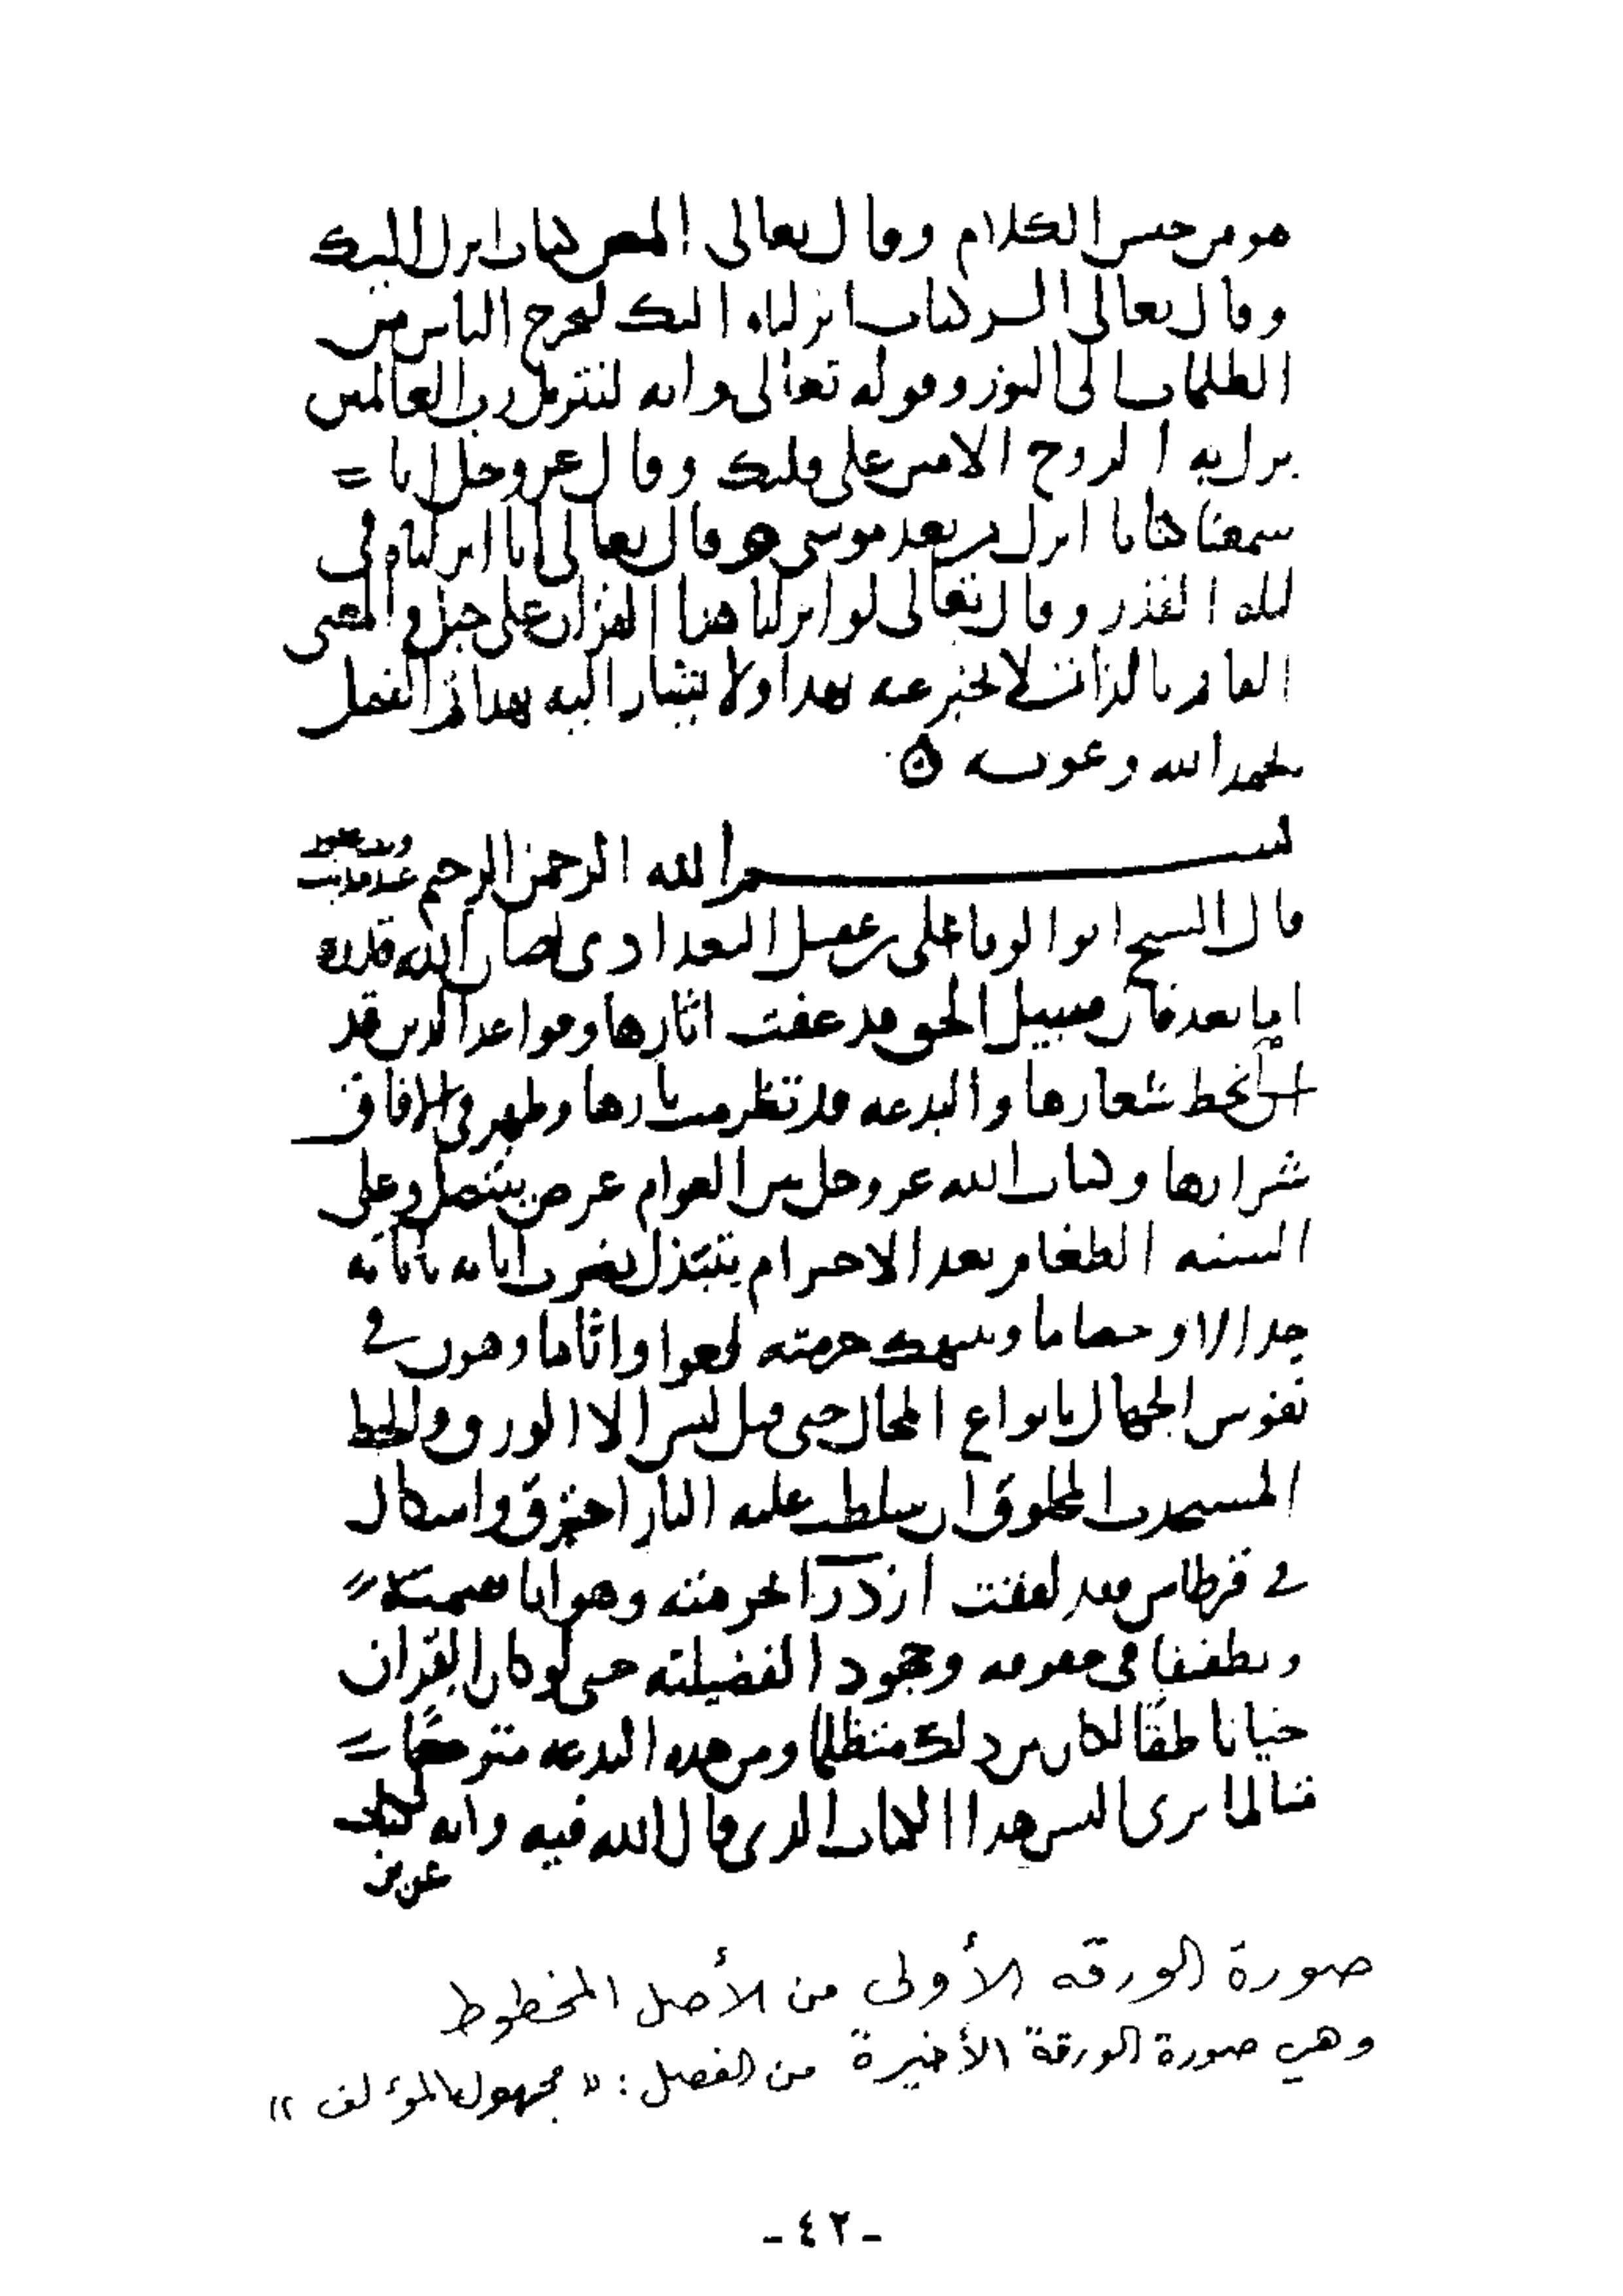 هو من جنس الكلام وقال تعالى المص كتاب انزل اليك
وقال تعالى الر كتاب انزلناه اليك لتخرج الناس من
الظلمات الى النور وقوله تعالى وانه لتنزيل رب العالمين
نزل به الروح الامين على قلبك وقال عز وجل انا
سمعنا كتابا انزل من بعد موسى وقال تعالى انا انزلناه في
ليلة القدر وقال تعالى لو انزلنا هذا القران على جبل والمعنى
القائم بالذات لا يخبر عنه بهذا ولا يشار اليه بهذا تم الفصل
بحمد الله وعونه
بسم الله الرحمن الرحيم
قال الشيخ ابو الوفا علي بن عقيل البغدادي
اما بعد فان سبيل الحق قد عفت اثارها وقواعد الدين قد
انحط شعارها والبدعة قد تضرمت نارها وظهر في الافاق
شرارها وكتاب الله عز وجل بين العوام غرض ينتضل وعلى
السنة الطغام بعد الاحترام يبتذل بضرب اياته باياته
جدالا وخصاما وتنتهك حرمته لغوا واثاما وهون في
نفوس الجهال بانواع المحال حتى قيل ليس الا الورق والخط
المستحدث المخلوق ان سلطت عليه النار احترق واشكال
في قرطاس قد لفقت ازدراء لحرمته وهوانا
وتطفيفا في حقوقه وجحودا لفضيلته حتى لو كان القران
حيا ناطقا لكان من ذلك متظلما ومن هذه البدعة متوجعا
متالما ترى اليس هذا الكتاب الذي قال الله فيه وانه لكتاب
عزيز
صورة الورقة الأولى من الأصل المخطوط
وهي صورة الورقة الأخيرة من الفصل : « مجهول المؤلف »
- ٤٢ -